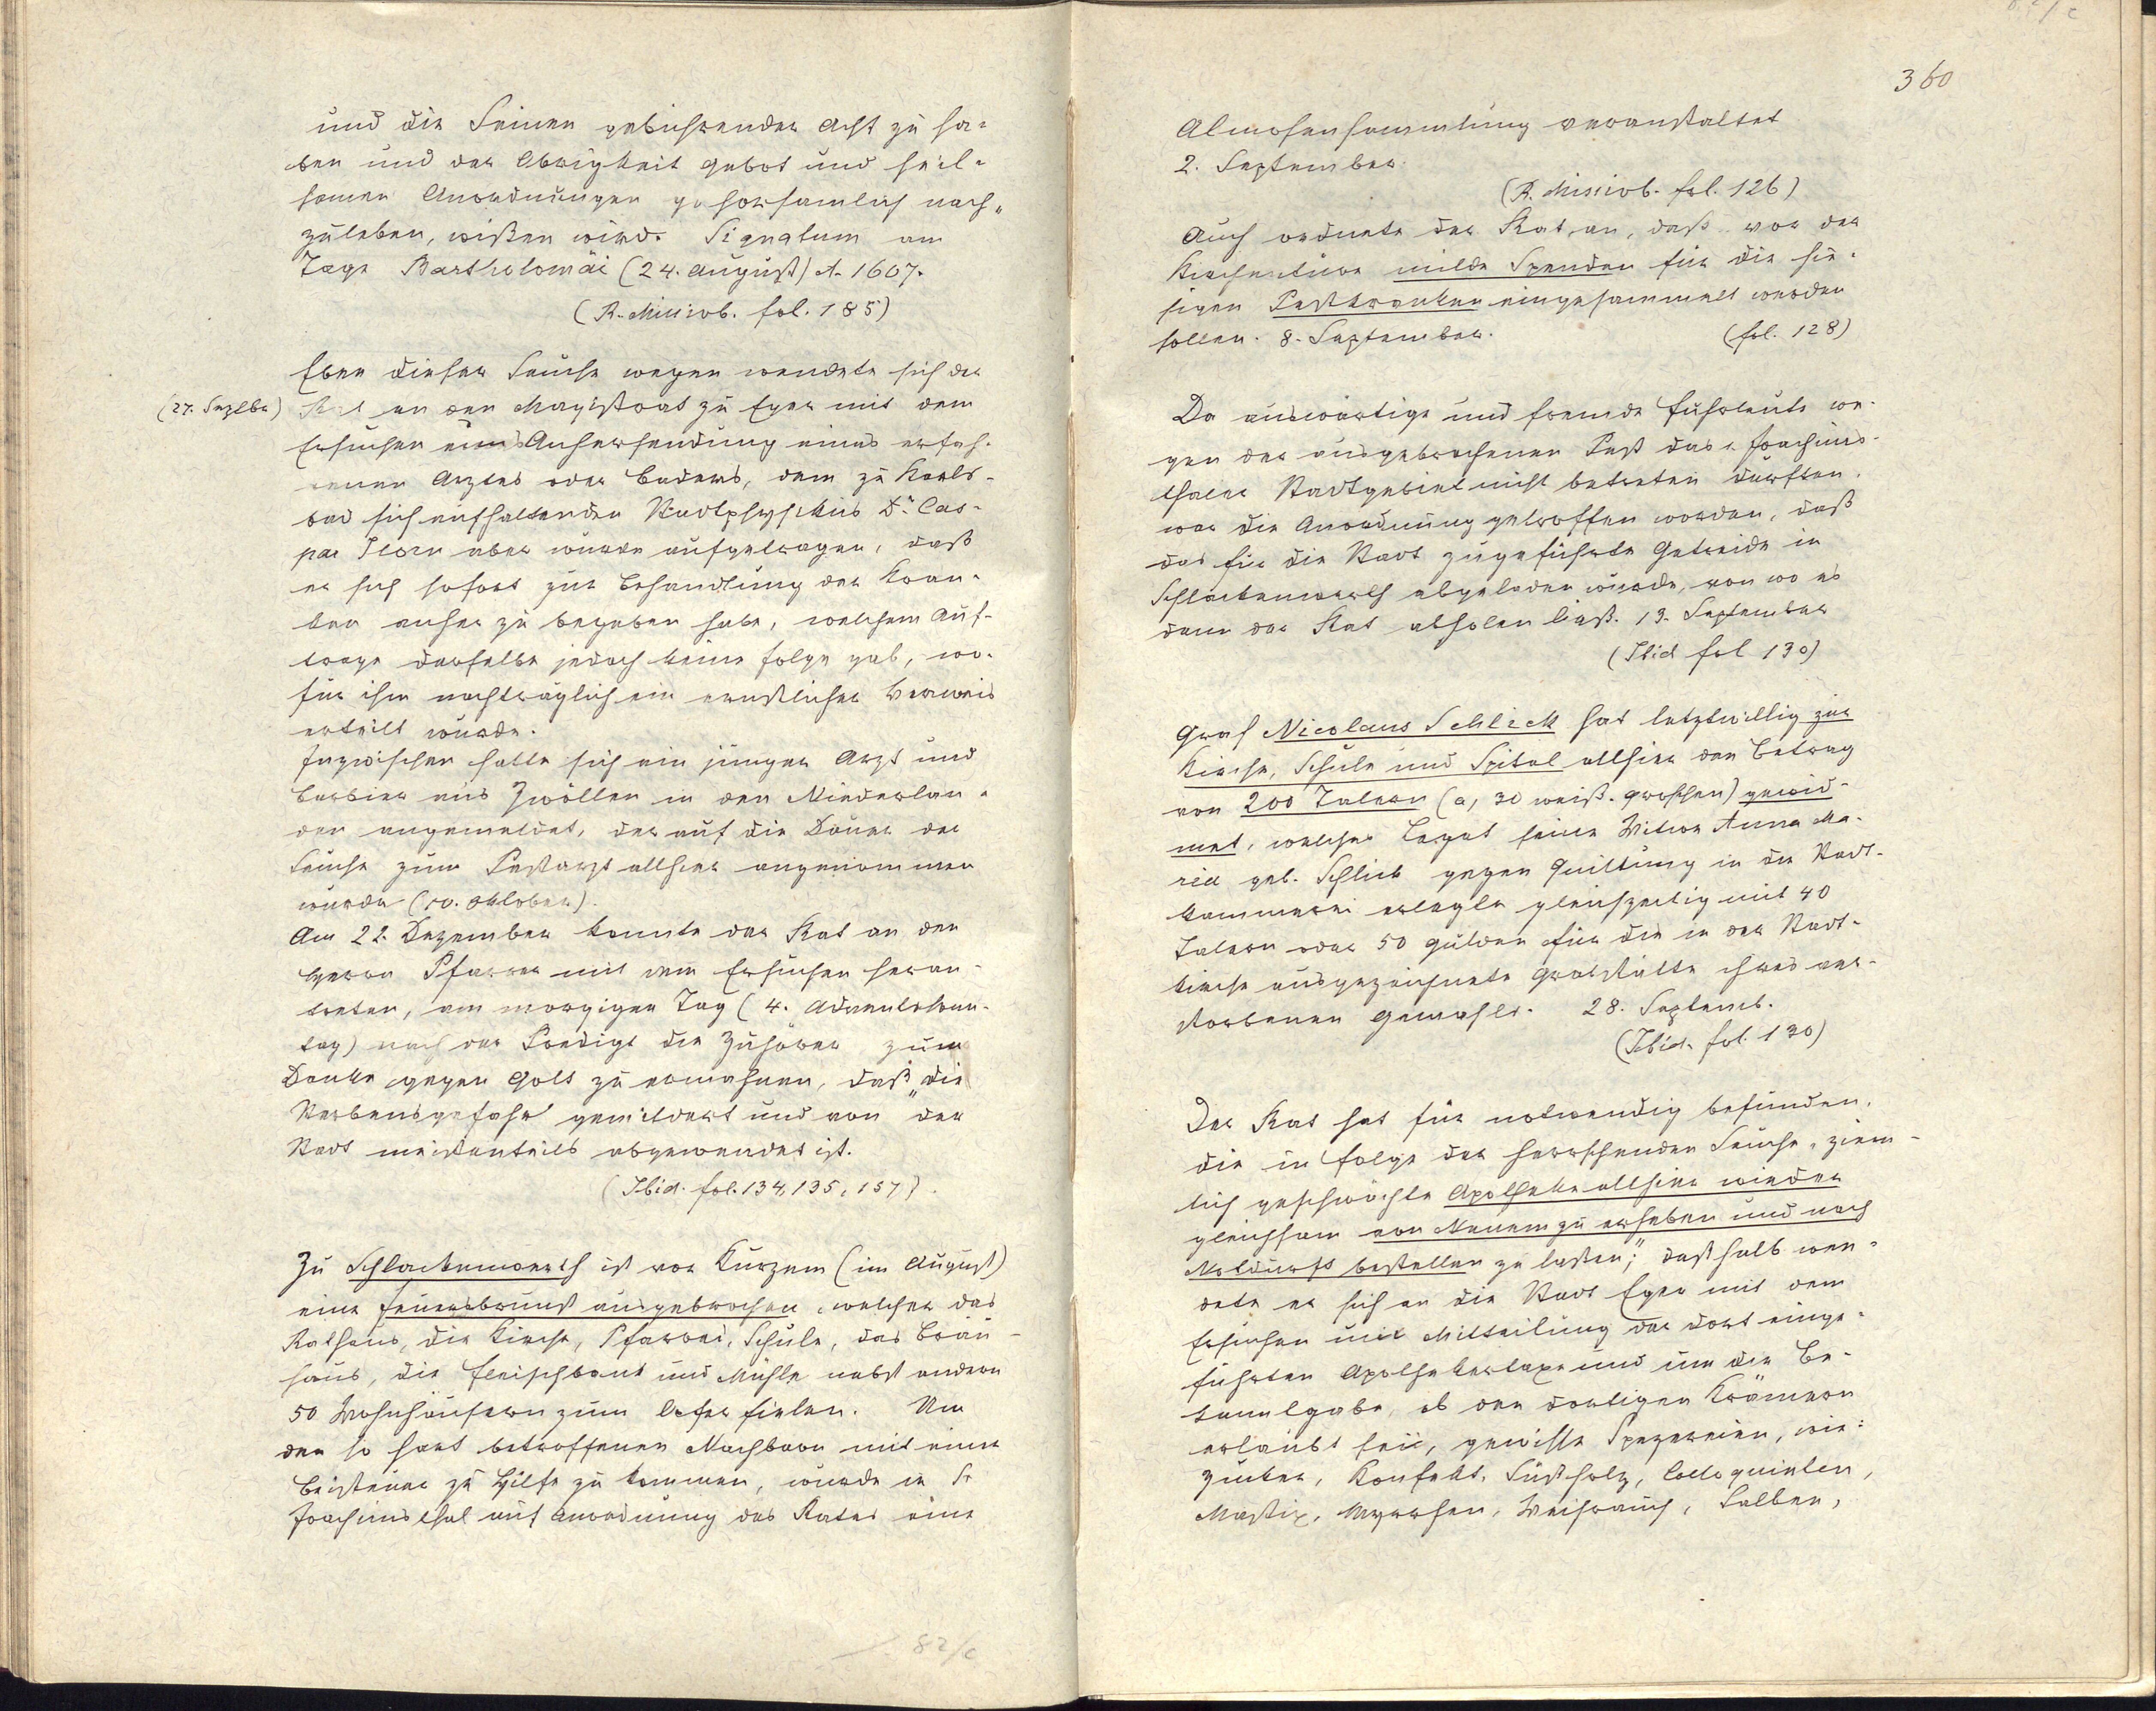 und die Seinen gebührender Acht zu ha=
ben und der Obrigkeit Gebot und heil=
samen Anordnungen gehorsamlich nach=
zuleben, wißen wird. Signatum am
Tage Bartholomäi (24. August) A. 1607.
(R. Missivb. fol. 185)
Eben dieser Seuche wegen wendete sich der
(27. Septbr) Rat an den Magistrat zu Eger mit dem
Ersuchen um Anhersendung eines erfah=
renen Arztes oder Baders, dem zu Karls=
bad sich aufhaltenden Stadtphysikus Dr. Cas=
par aber wurde aufgetragen, daß
er sich sofort zur Behandlung der Kran=
ken anher zu begeben habe, welchem Auf=
trage derselbe jedoch keine Folge gab, wo=
für ihm nachträglich ein ernstlicher Verweis
erteilt wurde.
Inzwischen hatte sich ein junger Arzt und
Barbier aus Zwöllen in den Niederlan=
den angemeldet, der auf die Dauer der
Seuche zum Pestarzt allhier angenommen
wurde (10. Oktober).
Am 22. Dezember konnte der Rat an den
Herrn Pfarrer mit dem Ersuchen heran=
treten, am morgigen Tag (4. Adventsonn=
tag) nach der Predigt die Zuhörer zum
Danke gegen Gott zu ermahnen, daß „die
Sterbensgefahr gemildert und von der
Stadt meistenteils abgewendet ist.
(Ibid. fol. 134, 135, 157).
Zu Schlackenwerth ist vor Kurzem (im August)
eine Feuersbrunst ausgebrochen, welcher das
Rathaus, die Kirche, Pfarrei, Schule, das Bräu=
haus, die Fleischbank und Mühle nebst andern
50 Wohnhäusern zum Opfer fielen. Um
den so hart betroffenen Nachbarn mit einer
Beisteuer zu Hilfe zu kommen, wurde in St
Joachimsthal auf Anordnung des Rates eine
82/c
360
Almosensammlung veranstaltet
2. September.
(R. Missivb. fol. 126)
Auch ordnete der Rat an, daß vor der
Kirchentüre milde Spenden für die hie=
sigen Pestkranken eingesammelt werden
sollen. 8. September. (fol. 128)
Da auswärtige und fremde Fuhrleute we=
gen der ausgebrochenen Pest das Joachims=
thaler Stadtgebiet nicht betreten durften,
war die Anordnung getroffen worden, daß
das für die Stadt zugeführte Getreide in
Schlackenwerth abgeladen wurde, von wo es
dann der Rat abholen ließ. 13. September
(Ibid fol 130)
Graf Nicolaus Schlick hat letztwillig zur
Kirche, Schule und Spital allhier den Betrag
von 200 Talern (a, 30 weiß. Groschen) gewid=
met, welches Legat seine Witwe Anna Ma=
ria geb. Schlick gegen Quittung in die Stadt=
kammerei erlegte gleichzeitig mit 40
Talern oder 50 Gulden für die in der Stadt=
kirche ausgezeichnete Grabstätte ihres ver=
storbenen Gemahls. 28. Septemb.
(Ibid. fol. 130)
Der Rat hat für notwendig befunden,
die in Folge der herrschenden Seuche „ziem=
lich geschwächte Apotheke allhier wieder
gleichsam von Neuem zu erheben und nach
Notdurft bestellen zu laßen“; deßhalb wen=
dete er sich an die Stadt Eger mit dem
Ersuchen um Mitteilung der dort einge=
führten Apothekertaxe und um die Be=
kanntgabe, ob den dortigen Krämern
erlaubt sei, gewisse Spezereien, wie:
Zucker, Konfekt, Süßholz, Colloquinten,
Mastix, Myrrhen, Weihrauch, Salben,